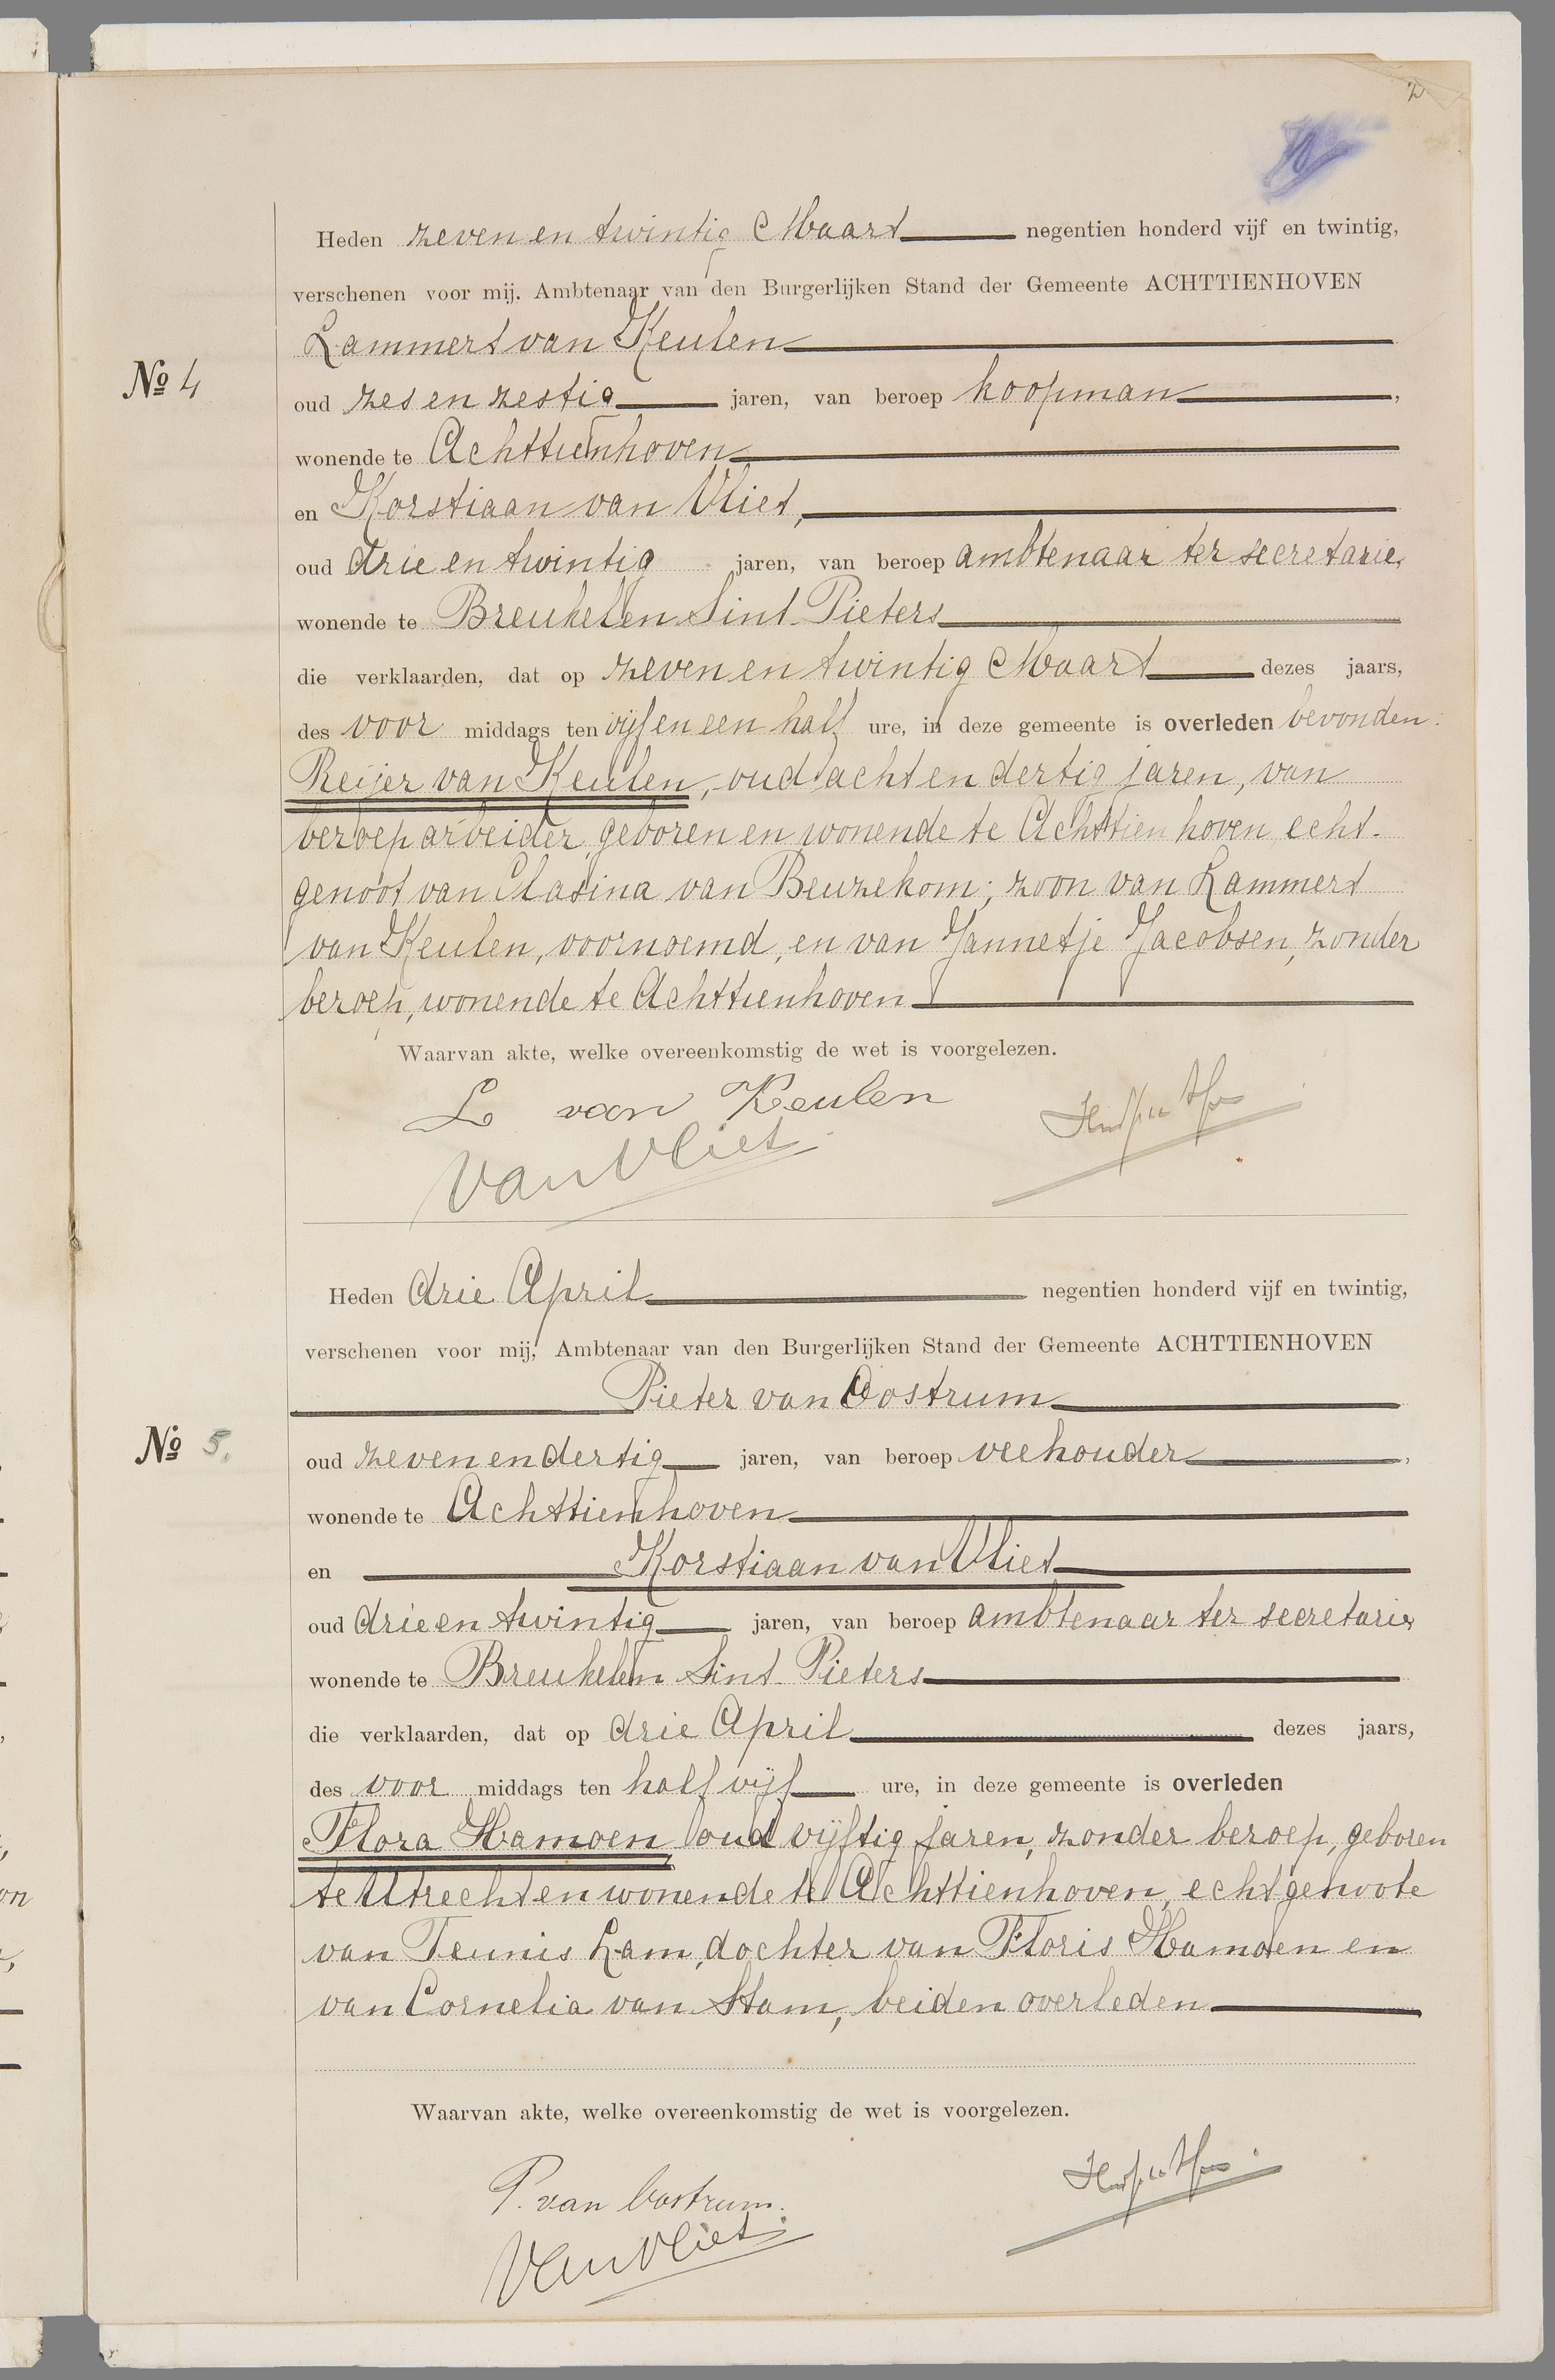 2
Heden zeven en twintig Maart negentien honderd vijf en twintig,
verschenen voor mij, Ambtenaar van den Burgerlijken Stand der Gemeente ACHTTIENHOVEN
Lammert van Keulen
No 4
oud zes en zestig jaren, van beroep koopman,
wonende te Achttienhoven
en Korstiaan van Vliet,
oud drie en twintig jaren, van beroep ambtenaar ter secretarie,
wonende te Breukelen Sint Pieters
die verklaarden, dat op zeven en twintig Maart dezes jaars,
des voor middags ten vijf en een half ure, in deze gemeente is overleden bevonden:
Reijer van Keulen, oud acht en dertig jaren, van
beroep arbeider, geboren en wonende te Achttienhoven, echt-
genoot van Clasina van Beuzekom; zoon van Lammert
van Keulen, voornoemd, en van Jannetje Jacobsen, zonder
beroep, wonende te Achttienhoven
Waarvan akte, welke overeenkomstig de wet is voorgelezen.
L van Keulen
van Vliet
Heden drie April negentien honderd vijf en twintig,
verschenen voor mij, Ambtenaar van den Burgerlijken Stand der Gemeente ACHTTIENHOVEN
Pieter van Oostrum
No 5.
oud zeven en dertig jaren, van beroep veehouder,
wonende te Achttienhoven
en Korstiaan van Vliet
oud drie en twintig jaren, van beroep ambtenaar ter secretarie,
wonende te Breukelen Sint Pieters
die verklaarden, dat op drie April dezes jaars,
des voor middags ten half vijf ure, in deze gemeente is overleden
Flora Hamoen oud vijftig jaren, zonder beroep, geboren
te Utrecht en wonende te Achttienhoven, echtgenoote
van Teunis Lam, dochter van Floris Hamoen en
van Cornelia van Stam, beiden overleden
Waarvan akte, welke overeenkomstig de wet is voorgelezen.
P. van Oostrum.
van Vliet